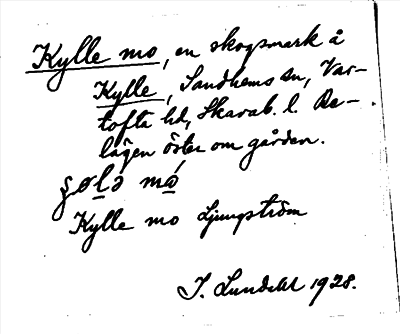 Kylle mo, en skogsmark å
Kylle, Sandhems sn, Var-
tofta hd, Skarab. l. Be-
lägen öster om gården.
Kylle mo Ljungström
J. Lundahl 1928.